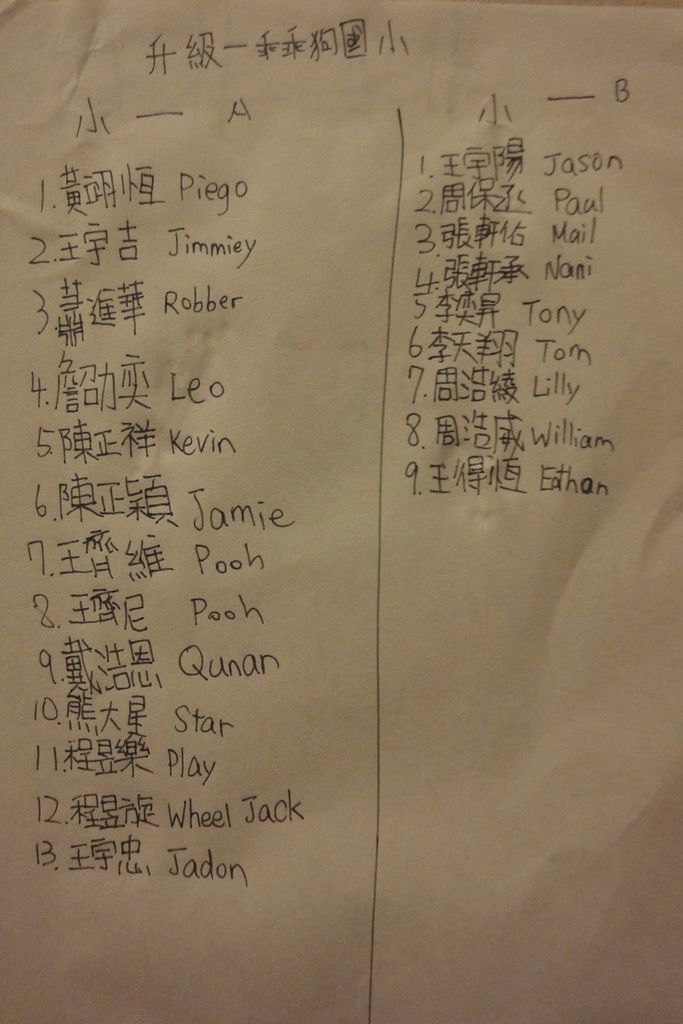 升級一乖乖狗國小
小一 A
1.黃翊恒 Piego
2.王宇吉 Jimmiey
3.蕭進華 Robber
4.詹劭奕 Leo
5.陳正祥 Kevin
6.陳正穎 Jamie
7.王齊維 Pooh
8.王齊尼 Pooh
9.戴浩恩 Qunan
10.熊大星 Star
11.程昱樂 Play
12.程昱旋 Wheel Jack
13.王宇忠 Jadon
小一 B
1.王宇陽 Jason
2.周保丞 Paul
3.張軒佑 Mail
4.張軒承 Nani
5 李奕昇 Tony
6 李天翔 Tom
7.周浩綾 Lilly
8.周浩威 William
9.王得恆 Eathan